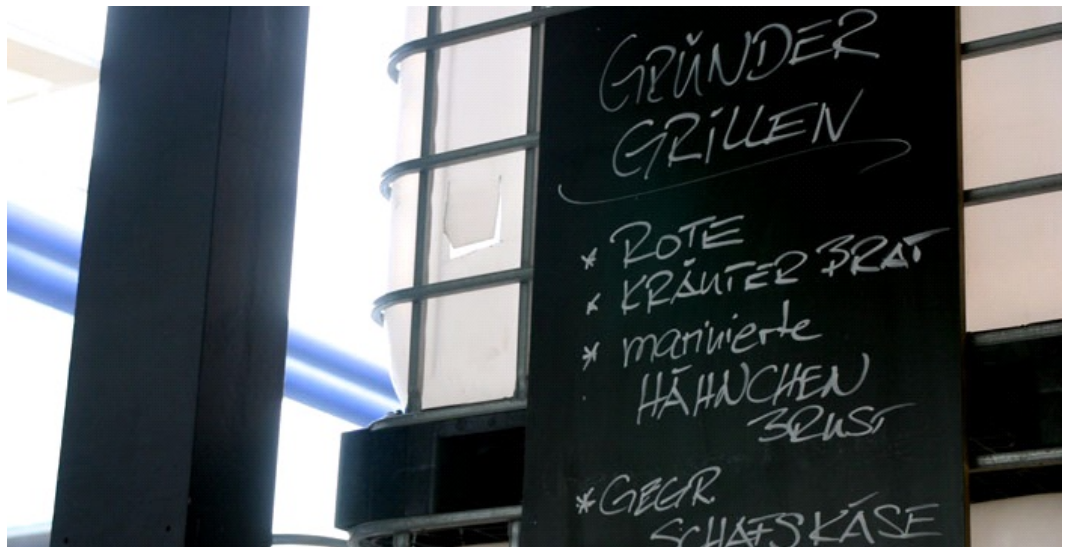 GRÜNDER
GRILLEN
* ROTE
* KRÄUTER BRAT
* marinierte
HÄHNCHEN
BRUST
* GEGR.
SCHAFSKÄSE